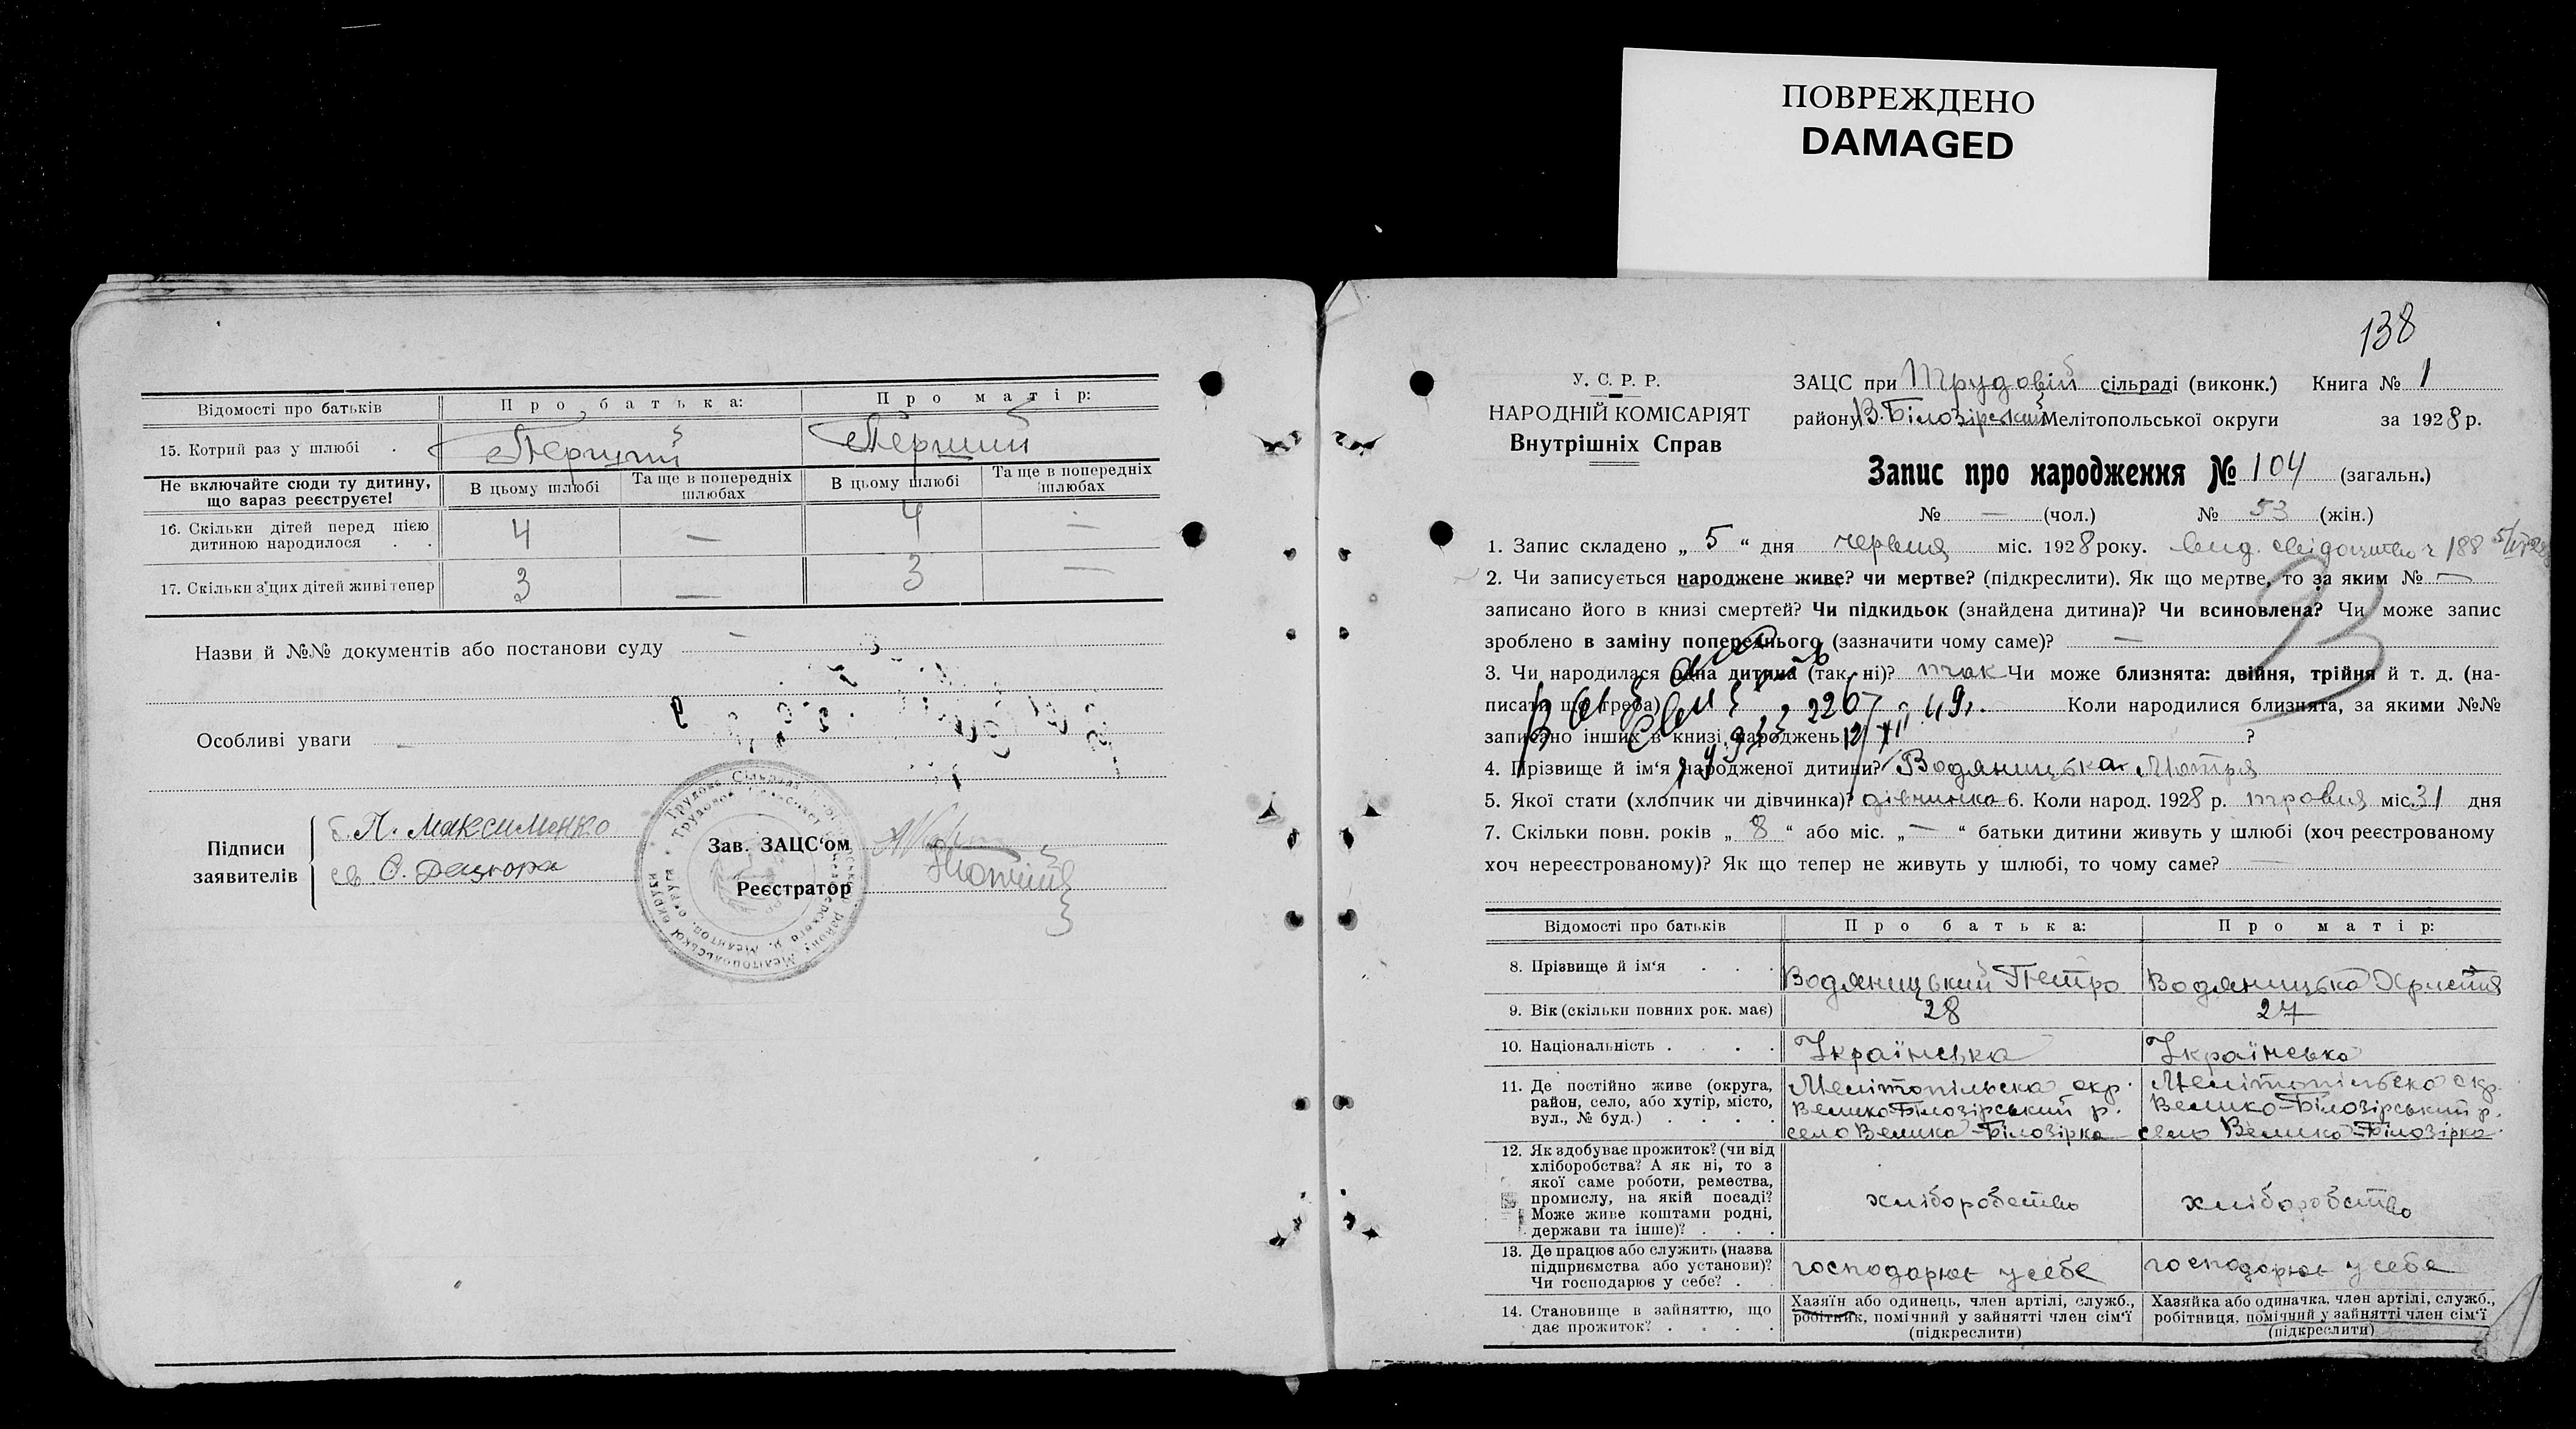 ПОВРЕЖДЕНО
DAMAGED
Відомості про батьків
Про батька:
Про матір:
15. Котрий раз у шлюбі .
Перший
Перший
Не включайте сюди ту дитину, що вараз реєструєте!
В цьому шлюбі
Та ще в попередніх шлюбах
В цьому шлюбі
Та ще в попередніх шлюбах
16. Скільки дітей перед цією дитиною народилося . .
4
—
4
—
17. Скільки з цих дітей живі тепер
3
—
3
—
Назви й №№ документів або постанови суду —
Особливі уваги —
Підписи заявителів
П. Максименко
С.
Зав. ЗАЦС‘ом
Реєстратор
138
У. С. Р. Р.
НАРОДНІЙ КОМІСАРІЯТ
Внутрішніх Справ
ЗАЦС при Трудовій сільраді (виконк.) Книга № 1
району В. Білозірський Мелітопольської округи за 1928 р.
Запис про народження № 104 (загальн.)
№ — (чол.) № 53 (жін.)
1. Запис складено „ 5 “ дня червня міс. 1928 року. вид. свідоцтво 188
2. Чи записується народжене живе? чи мертве? (підкреслити). Як що мертве, то за яким № —
записано його в книзі смертей? Чи підкидьок (знайдена дитина)? Чи всиновлена? Чи може запис
зроблено в заміну попереднього (зазначити чому саме)? —
3. Чи народилася одна дитина (так, ні)? так Чи може близнята: двійня, трійня й т. д. (на-
писати що треба) Коли народилися близнята, за якими №№
записано інших в книзі народжень ?
226
12/XII 49.
4. Прізвище й ім‘я народженої дитини? Водяницька Мотря
5. Якої стати (хлопчик чи дівчинка)? дівчинка 6. Коли народ. 1928 р. травня міс. 31 дня
7. Скільки повн. років „ 8 “ або міс. „ — “ батьки дитини живуть у шлюбі (хоч реєстрованому
хоч нереєстрованому)? Як що тепер не живуть у шлюбі, то чому саме? —
Відомості про батьків
Про батька:
Про матір:
8. Прізвище й ім‘я . . .
Водяницький Петро
Водяницька Христя
9. Вік (скільки повних рок. має)
28
27
10. Національність . . . .
Українська
Українська
11. Де постійно живе (округа,
район, село, або хутір, місто,
вул., № буд.) . . . .
Мелітопільська окр.
Велико-Білозірський р.
село Велика-Білозірка
Мелітопільська окр.
Велико-Білозірський р.
село Велика-Білозірка
12. Як здобуває прожиток? (чи від
хліборобства? А як ні, то з
якої саме роботи, ремества,
промислу, на якій посаді?
Може живе коштами родні,
держави та інше)? . . .
хліборобство
хліборобство
13. Де працює або служить (назва
підприємства або установи)?
Чи господарює у себе? . .
господарює у себе
господарює у себе
14. Становище в зайняттю, що
дає прожиток? . . . .
Хазяїн або одинець, член артілі, служб.,
робітник, помічний у зайнятті член сім‘ї
(підкреслити)
Хазяйка або одиначка, член артілі, служб.,
робітниця, помічний у зайнятті член сім‘ї
(підкреслити)